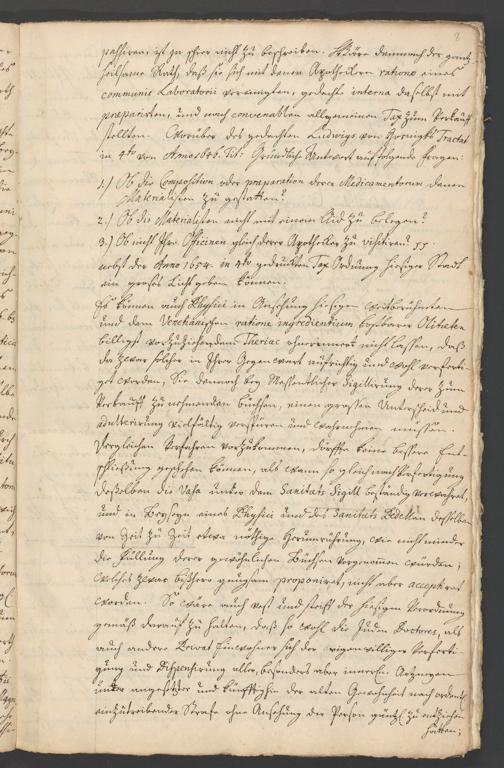 8
passiren, ist ja schon nicht zu beschreiben. Wäre demnach der gantz
heilsame Rath, daß sie sich mit denen Apothekern ratione eines
communis Laboratorii vereinigten, gedachte interna daselbst mit
præparirten, und nach convenablen allgemeinen Tax zum Verkauff
stellten. Worüber des gedachten Ludwigs von Hörnigks Tractat
in 4to von Anno 1646. Tit: Gründliche Antwort auf folgende Fragen:
1.) Ob die Composition oder præparation derer Medicamentorum denen
Materialisten zu gestatten?
2.) Ob die Materialisten nicht mit einem Aid zu belegen?
3.) Ob nicht Ihre Officinen gleich derer Apotheker zu visitiren?
nebst der Anno 1654. in 4to gedruckten Tax Ordnung hiesiger Stadt
ein großes Licht geben können.
Es können auch Physici in Ansehung hiesigen weitberühmten
und dem Venetianischen ratione ingredientium kostbarer Olitäten
billigst vorzuziehenden Theriac ohnerinnert nicht lassen, daß
da zwar solcher in Ihrer Gegenwart aufrichtig und wohl verferti-
get worden, Sie dennoch bey Messentlicher Sigillirung derer zum
Verkauff zu nehmenden büchsen, einen grossen Unterscheid und
adulterirung vielfältig verspüren und wahrnehmen müssen.
Dergleichen Verfahren vorzukommen, dürffte keine bessere Ent-
schliesung geschehen können, als wann so gleich nach Verfertigung
desselben die Vasa unter dem Sanitäts Sigill beständig verwahret,
und in Beyseyn eines Physici und des Sanitäts Pedellen desselben
von Zeit zu Zeit etwa nöthige Herumrührung, wie nicht minder
die Füllung derer gewöhnlichen Büchsen vorgenommen würden;
welches zwar bißhero genugsam proponiret, nicht aber acceptiret
worden. So wäre auch fest und steiff der hiesigen Verordnung
gemäß darauf zu halten, daß so wohl die Juden Doctores, als
auch andere Privat Einwohner sich der eigenwilliger Verferti-
gung und Dispensirung aller, besonders aber innerl. Artzneyen
unter angesetzter und künfftighin der alten Gewohnheit nach ordentl.
einzutreibender Strafe ohne Ansehung der Person gäntzl. zu entziehen
hätten;